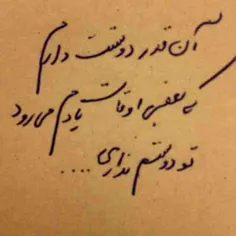 آن قدر دوستت دارم
که بعضی اوقات یادم می رود
تو دوستم نداری .....